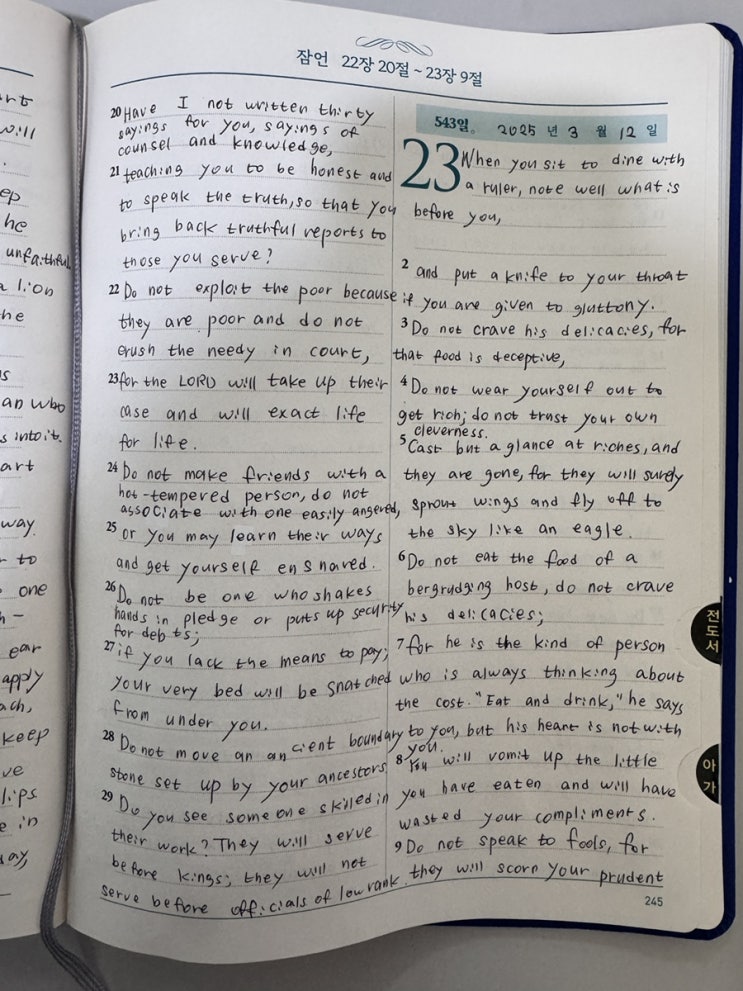 art
will
.
ep
he
unfaithful
a lion
he
s
an who
s into it.
art
way.
r to
one
h-
ear
apply
ach,
keep
ve
lips
e in
say,
잠언 22장 20절 ~ 23장 9절
20 Have I not written thirty
sayings for you, sayings of
counsel and knowledge,
21 teaching you to be honest and
to speak the truth, so that you
bring back truthful reports to
those you serve?
22 Do not exploit the poor because
they are poor and do not
crush the needy in court,
23 for the LORD will take up their
case and will exact life
for life.
24 Do not make friends with a
hot-tempered person, do not
associate with one easily angered,
25 or you may learn their ways
and get yourself ensnared.
26 Do not be one who shakes
hands in pledge or puts up security
for debts;
27 if you lack the means to pay;
your very bed will be snatched
from under you.
28 Do not move an ancient boundary
stone set up by your ancestors
29 Do you see someone skilled in
their work? They will serve
before kings; they will not
serve before officials of low rank.
543일。 2025 년 3 월 12 일
23 When you sit to dine with
a ruler, note well what is
before you,
2 and put a knife to your throat
if you are given to gluttony.
3 Do not crave his delicacies, for
that food is deceptive,
4 Do not wear yourself out to
get rich; do not trust your own
cleverness.
5 Cast but a glance at riches, and
they are gone, for they will surely
sprout wings and fly off to
the sky like an eagle.
6 Do not eat the food of a
bergrudging host, do not crave
his delicacies;
7 for he is the kind of person
who is always thinking about
the cost. "Eat and drink," he says
to you, but his heart is not with
you.
8 You will vomit up the little
you have eaten and will have
wasted your compliments.
9 Do not speak to fools, for
they will scorn your prudent
245
전도서
아가